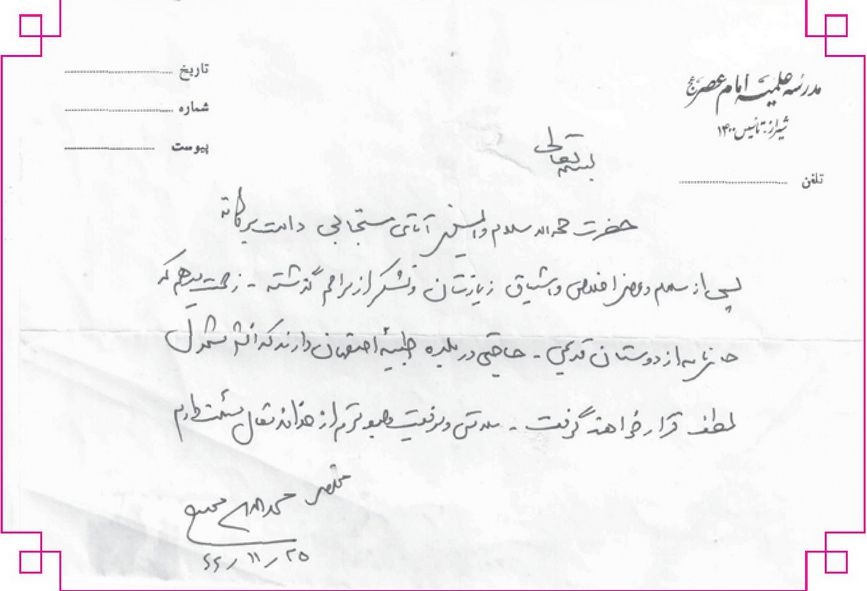 مدرسه علمیه امام عصر عج
شیراز: تأسیس ۱۴۰۰
تلفن
تاریخ
شماره
پیوست
بسمه تعالی
حضرت حجة الاسلام والمسلمین آقای مستجابی دامت برکاته
پس از سلام و عرض اخلاص و اشتیاق زیارتتان و تشکر از مراحم گذشته - زحمت میدهم که
از دوستان قدیمی - حاجتی در بلده طیبه اصفهان دارند که مشمول
لطف قرار خواهند گرفت - سلامتی و موفقیت را از خداوند متعال مسئلت دارم
مخلص محمد
۶۶/۱۱/۲۵